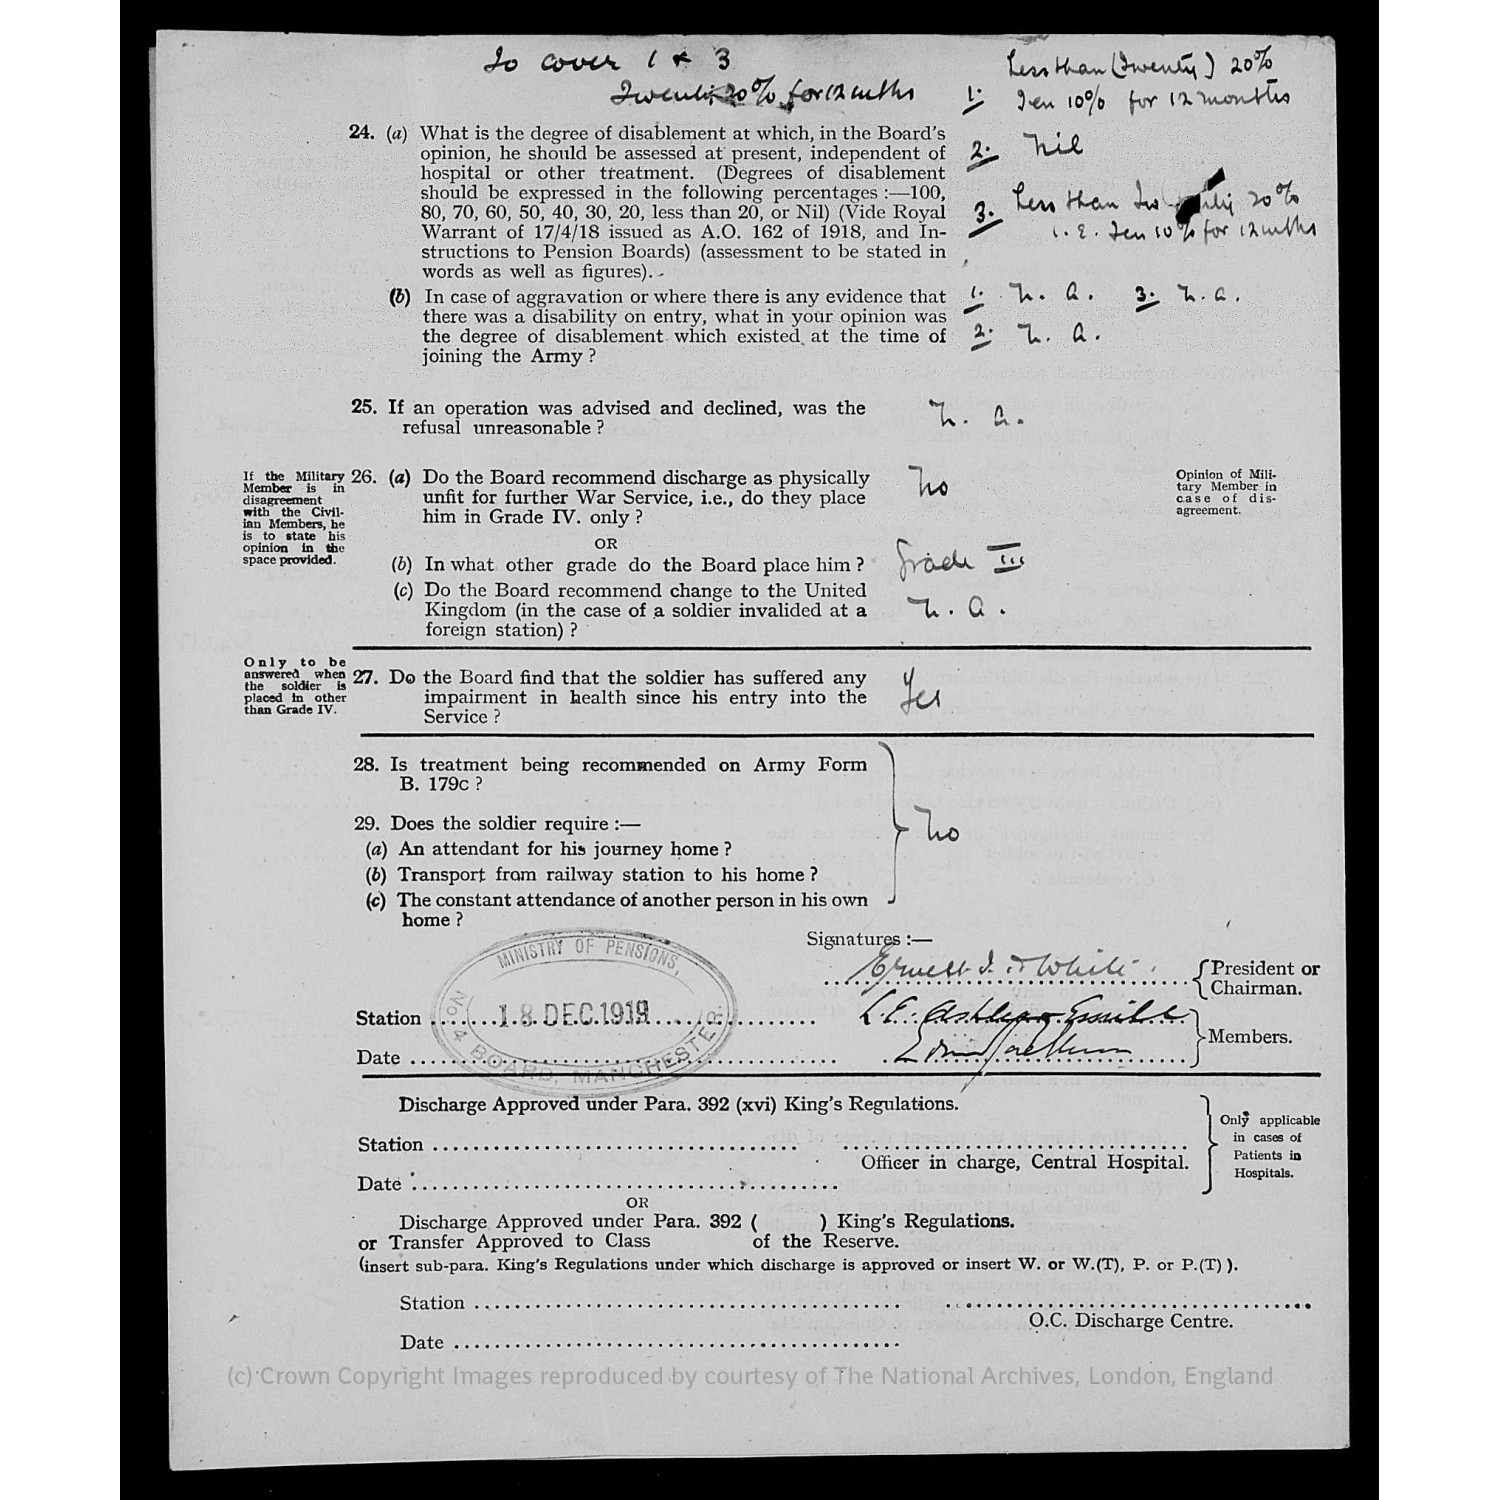 To cover 1 & 3
Twenty 20% for 12 mths
Less than (Twenty) 20%
1. Ten 10% for 12 months
2. Nil
3. Less than Twenty 20%
i.e. Ten 10% for 12 mths
24. (a) What is the degree of disablement at which, in the Board's
opinion, he should be assessed at present, independent of
hospital or other treatment. (Degrees of disablement
should be expressed in the following percentages :—100,
80, 70, 60, 50, 40, 30, 20, less than 20, or Nil) (Vide Royal
Warrant of 17/4/18 issued as A.O. 162 of 1918, and In-
structions to Pension Boards) (assessment to be stated in
words as well as figures).
(b) In case of aggravation or where there is any evidence that
there was a disability on entry, what in your opinion was
the degree of disablement which existed at the time of
joining the Army ?
1. N. A. 3. N. A.
2. N. A.
25. If an operation was advised and declined, was the
refusal unreasonable ?
N. A.
If the Military
Member is in
disagreement
with the Civil-
ian Members, he
is to state his
opinion in the
space provided.
26. (a) Do the Board recommend discharge as physically
unfit for further War Service, i.e., do they place
him in Grade IV. only ?
No
Opinion of Mili-
tary Member in
case of dis-
agreement.
OR
(b) In what other grade do the Board place him ?
Grade III
(c) Do the Board recommend change to the United
Kingdom (in the case of a soldier invalided at a
foreign station) ?
N. A.
Only to be
answered when
the soldier is
placed in other
than Grade IV.
27. Do the Board find that the soldier has suffered any
impairment in health since his entry into the
Service ?
Yes
28. Is treatment being recommended on Army Form
B. 179c ?
29. Does the soldier require :—
(a) An attendant for his journey home ?
(b) Transport from railway station to his home ?
(c) The constant attendance of another person in his own
home ?
No
Signatures :—
Ernest White
President or
Chairman.
MINISTRY OF PENSIONS,
18 DEC. 1919
No 4 BOARD, MANCHESTER.
Station
Members.
Date
Discharge Approved under Para. 392 (xvi) King's Regulations.
Station
Officer in charge, Central Hospital.
Date
Only applicable
in cases of
Patients in
Hospitals.
OR
Discharge Approved under Para. 392 ( ) King's Regulations.
or Transfer Approved to Class of the Reserve.
(insert sub-para. King's Regulations under which discharge is approved or insert W. or W.(T), P. or P.(T) ).
Station
O.C. Discharge Centre.
Date
(c) Crown Copyright Images reproduced by courtesy of The National Archives, London, England